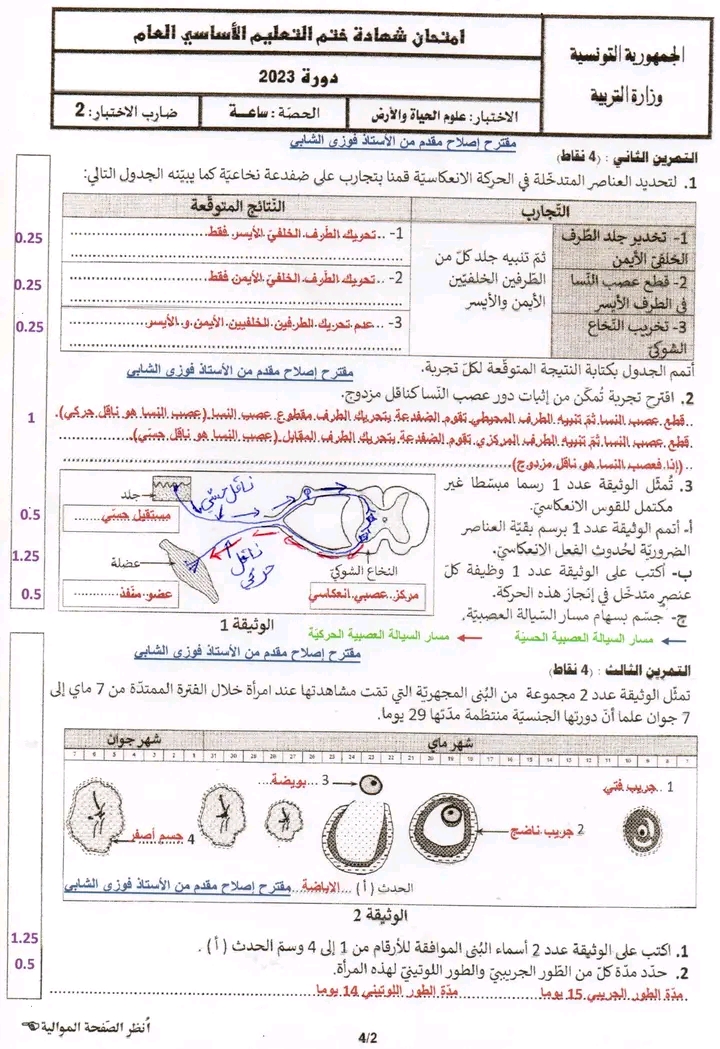 الجمهورية التونسية
وزارة التربية
امتحان شهادة ختم التعليم الأساسي العام
دورة 2023
الاختبار: علوم الحياة والأرض
الحصة: ساعة
ضارب الاختبار: 2
مقترح إصلاح مقدم من الأستاذ فوزي الشابي
التمرين الثاني : (4 نقاط)
1. لتحديد العناصر المتدخّلة في الحركة الانعكاسيّة قمنا بتجارب على ضفدعة نخاعيّة كما يبيّنه الجدول التالي:
التّجارب
النّتائج المتوقّعة
1- تخدير جلد الطّرف الخلفيّ الأيمن
2- قطع عصب النّسا في الطرف الأيسر
3- تخريب النّخاع الشوكيّ
ثمّ تنبيه جلد كلّ من الطّرفين الخلفيّين الأيمن والأيسر
1- ..تحريك الطرف الخلفيّ الأيسر فقط
2- ..تحريك الطرف الخلفيّ الأيمن فقط
3- ...عدم تحريك الطرفين الخلفيين الأيمن و الأيسر
0.25
0.25
0.25
أتمم الجدول بكتابة النتيجة المتوقّعة لكلّ تجربة.
مقترح إصلاح مقدم من الأستاذ فوزي الشابي
2. اقترح تجربة تُمكّن من إثبات دور عصب النّسا كناقل مزدوج.
..قطع عصب النسا ثمّ تنبيه الطرف المحيطي تقوم الضفدعة بتحريك الطرف مقطوع عصب النسا (عصب النسا هو ناقل حركي).
قطع عصب النسا ثمّ تنبيه الطرف المركزي تقوم الضفدعة بتحريك الطرف المقابل (عصب النسا هو ناقل حسّي)
..(إذا فعصب النسا هو ناقل مزدوج)
1
3. تُمثّل الوثيقة عدد 1 رسما مبسّطا غير
مكتمل للقوس الانعكاسيّ.
أ- أتمم الوثيقة عدد 1 برسم بقيّة العناصر
الضروريّة لحُدوث الفعل الانعكاسيّ.
ب- أكتب على الوثيقة عدد 1 وظيفة كلّ
عنصر متدخّل في إنجاز هذه الحركة.
ج- جسّم بسهام مسار السّيالة العصبيّة.
0.5
1.25
0.5
ناقل حسّي
جلد
مستقبل حسّي
ناقل
حركي
عضلة
عضو منفذ
النخاع الشوكيّ
مركز عصبي انعكاسي
الوثيقة 1
مسار السيالة العصبية الحسيّة
مسار السيالة العصبية الحركيّة
مقترح إصلاح مقدم من الأستاذ فوزي الشابي
التمرين الثالث : (4 نقاط)
تمثّل الوثيقة عدد 2 مجموعة من البُنى المجهريّة التي تمّت مشاهدتها عند امرأة خلال الفترة الممتدّة من 7 ماي إلى
7 جوان علما أنّ دورتها الجنسيّة منتظمة مدّتها 29 يوما.
شهر ماي
شهر جوان
1 ..جريب فتي
2 جريب ناضج
3 ...بويضة...
4 جسم أصفر
الحدث ( أ ) ...الاباضة...
مقترح إصلاح مقدم من الأستاذ فوزي الشابي
الوثيقة 2
1. اكتب على الوثيقة عدد 2 أسماء البُنى الموافقة للأرقام من 1 إلى 4 وسمّ الحدث ( أ ) .
2. حدّد مدّة كلّ من الطّور الجريبيّ والطور اللوتينيّ لهذه المرأة.
مدّة الطور الجريبي 15 يوما
مدّة الطور اللوتيني 14 يوما
1.25
0.5
أنظر الصّفحة الموالية
4/2